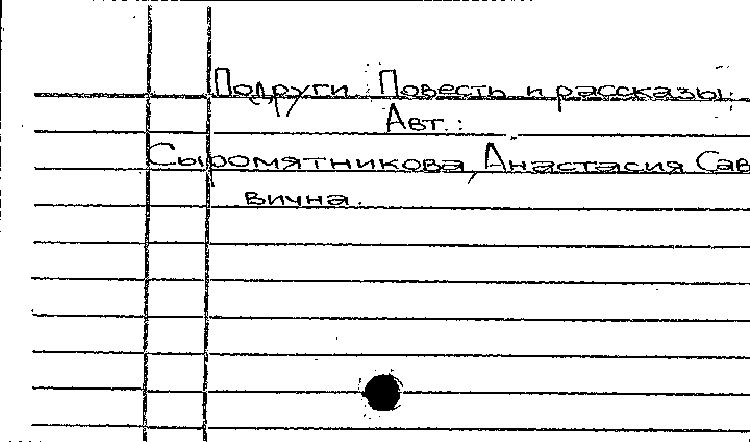 Подруги. Повесть и рассказы.
Авт.:
Сыромятникова, Анастасия Сав
вична.